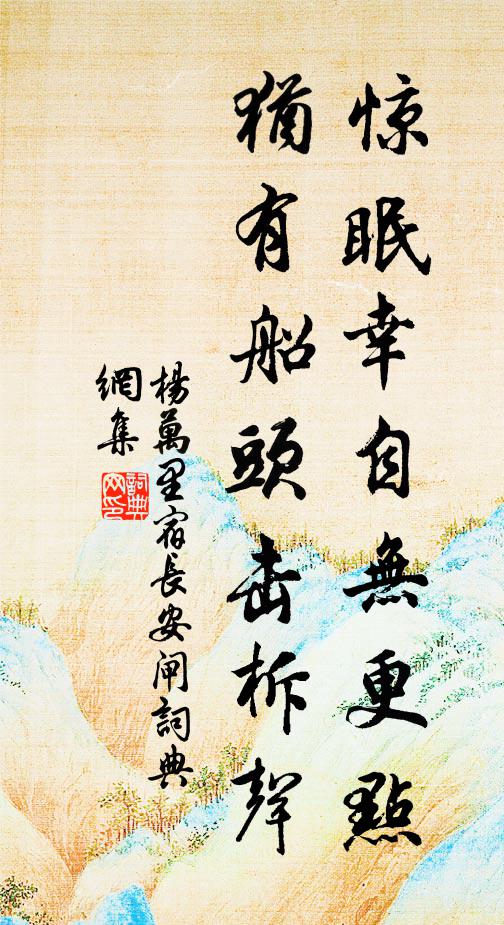 惊眠幸自無更點
猶有船頭击柝聲
楊萬里宿長安闸詞典
網集
詞典
网印